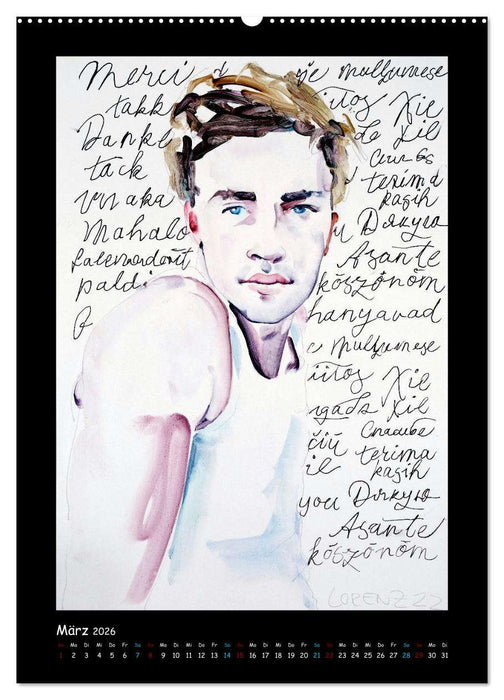 Merci
takk
Danke
tack
Mahalo
paldi
je mulțumesc
Xie
de Xil
terima
kasih
Дякую
Asante
köszönöm
hanyavad
c mulțumesc
Xie
Xil
Спасибо
čiū terima
kasih
you Дякую
Asante
köszönöm
LORENZ 22
März 2026
So Mo Di Mi Do Fr Sa So Mo Di Mi Do Fr Sa So Mo Di Mi Do Fr Sa So Mo Di Mi Do Fr Sa So Mo Di
1 2 3 4 5 6 7 8 9 10 11 12 13 14 15 16 17 18 19 20 21 22 23 24 25 26 27 28 29 30 31